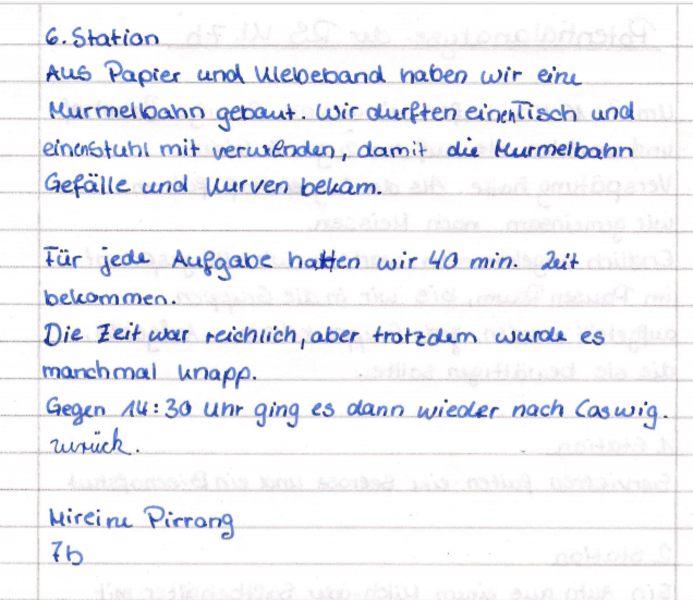 6. Station
Aus Papier und Klebeband haben wir eine
Murmelbahn gebaut. Wir durften einen Tisch und
einen Stuhl mit verwenden, damit die Murmelbahn
Gefälle und Kurven bekam.
Für jede Aufgabe hatten wir 40 min. Zeit
bekommen.
Die Zeit war reichlich, aber trotzdem wurde es
manchmal knapp.
Gegen 14:30 Uhr ging es dann wieder nach Coswig.
zurück.
Mireine Pirrang
7b